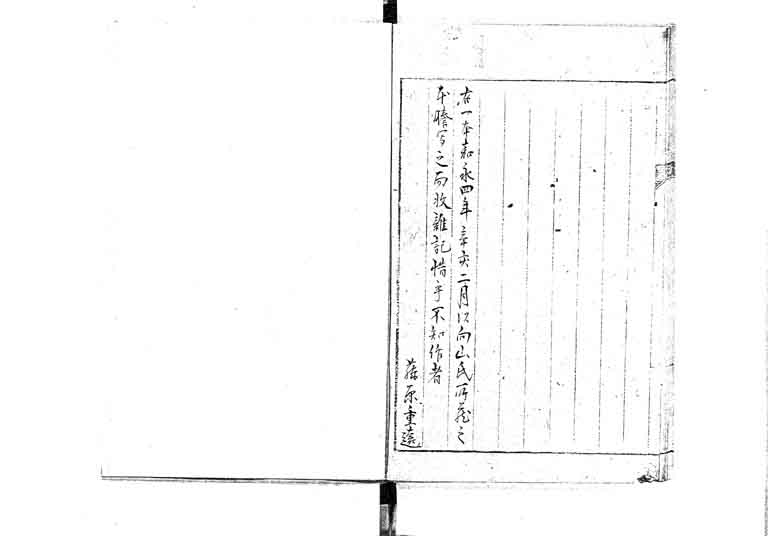 右一本嘉永四年辛亥二月以向山氏所蔵之
本謄写之而收雜記惜乎不知作者
藤原重遠